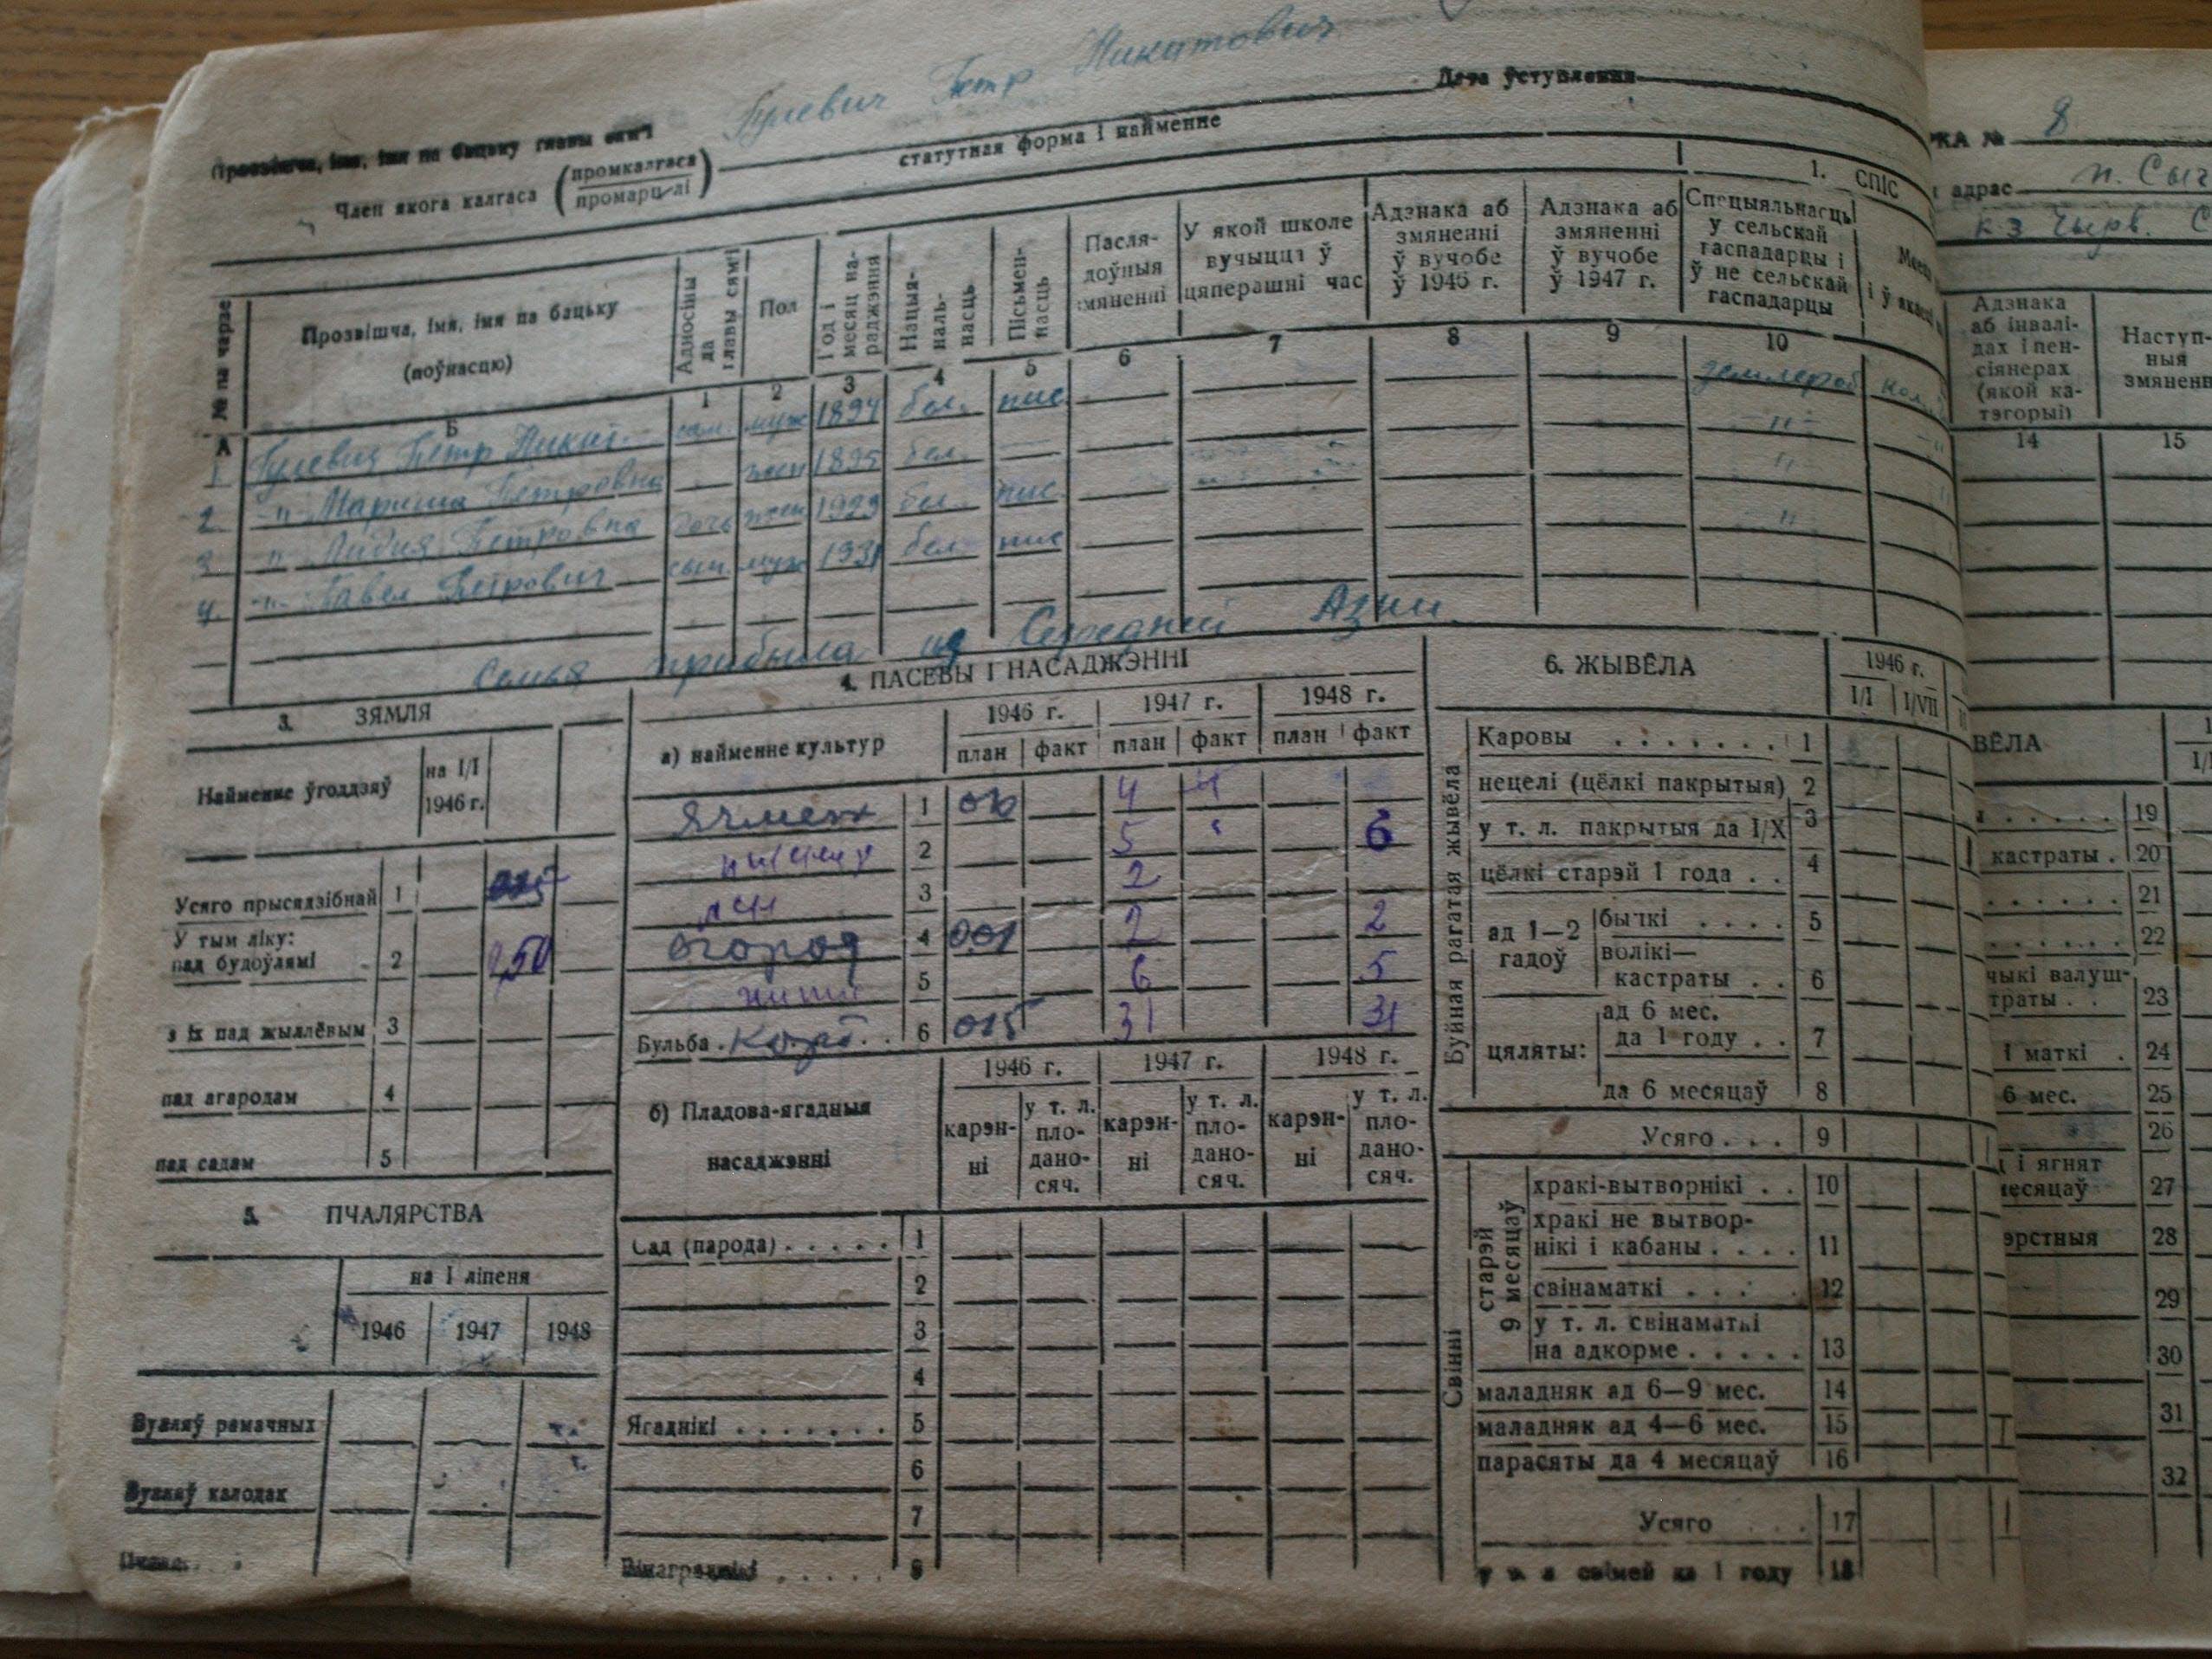 Гулевич Петр Никитович
Прозвішча, імя, імя па бацьку главы сям'і
Дата ўступлення
Член якога калгаса (промкалгаса / промарцелі)
статутная форма і найменне
1. СПІС
№ па чарзе
Прозвішча, імя, імя па бацьку (поўнасцю)
Адносіны да главы сям'і
Пол
Год і месяц нараджэння
Нацыянальнасць
Пісьменнасць
Паслядоўныя змяненні
У якой школе вучыцца ў цяперашні час
Адзнака аб змяненні ў вучобе ў 1946 г.
Адзнака аб змяненні ў вучобе ў 1947 г.
Спецыяльнасць у сельскай гаспадарцы і ў не сельскай гаспадарцы
А Б 1 2 3 4 5 6 7 8 9 10
1. Гулевич Петр Никит. сам. муж 1894 бел. пис земляроб
2. —"— Петровна жен 1895 бел. — —"—
3 —"— Лидия Петровна дочь жен 1929 бел. пис —"—
4. —"— Павел Петрович сын муж 1931 бел. пис —"—
Семья прибыла из Средней Азии
3. ЗЯМЛЯ
Найменне ўгоддзяў
на I/I 1946 г.
Усяго прысядзібнай 1
У тым ліку:
пад будоўлямі 2
з іх пад жыллёвым 3
пад агародам 4
пад садам 5
5. ПЧАЛЯРСТВА
на 1 ліпеня
1946 1947 1948
Вулляў рамачных
Вулляў калодак
4. ПАСЕВЫ І НАСАДЖЭННІ
а) найменне культур
1946 г. 1947 г. 1948 г.
план факт план факт план факт
Ячмень 1 4 4
2 5 6
лен 3 2
огород 4 0,01 2 2
жито 5 6 5
Бульба 6 015 31 31
б) Пладова-ягадныя насаджэнні
1946 г. 1947 г. 1948 г.
карэнні у т. л. пладаносяч. карэнні у т. л. пладаносяч. карэнні у т. л. пладаносяч.
Сад (парода) 1
2
3
4
Ягаднікі 5
6
7
Вінаграднікі 8
6. ЖЫВЁЛА
1946 г.
I/I I/VII
Буйная рагатая жывёла
Каровы 1
нецелі (цёлкі пакрытыя) 2
у т. л. пакрытыя да I/X 3
цёлкі старэй 1 года 4
ад 1—2 гадоў
бычкі 5
волікі—кастраты 6
цяляты:
ад 6 мес. да 1 году 7
да 6 месяцаў 8
Усяго 9
Свінні
старэй 9 месяцаў
хракі-вытворнікі 10
хракі не вытворнікі і кабаны 11
свінаматкі 12
у т. л. свінаматкі на адкорме 13
маладняк ад 6—9 мес. 14
маладняк ад 4—6 мес. 15
парасяты да 4 месяцаў 16
Усяго 17
18
КА № 8
адрас п. Сыч
к-з Чырв. С
Адзнака аб інвалідах і пенсіянерах (якой катэгорыі)
14 15
ВЁЛА
19
кастраты 20
21
22
23
1 маткі 24
6 мес. 25
26
і ягнят
27
28
29
30
31
32